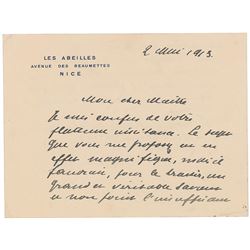 LES ABEILLES
AVENUE DES BEAUMETTES
NICE
2 Mai 1913.
Mon cher Maître
Je suis confus de votre
flatteuse insistance. Le sujet
que vous me proposez est en
effet magnifique, mais il
faudrait, pour le traiter, un
grand et véritable savant
et non point l'insuffisant